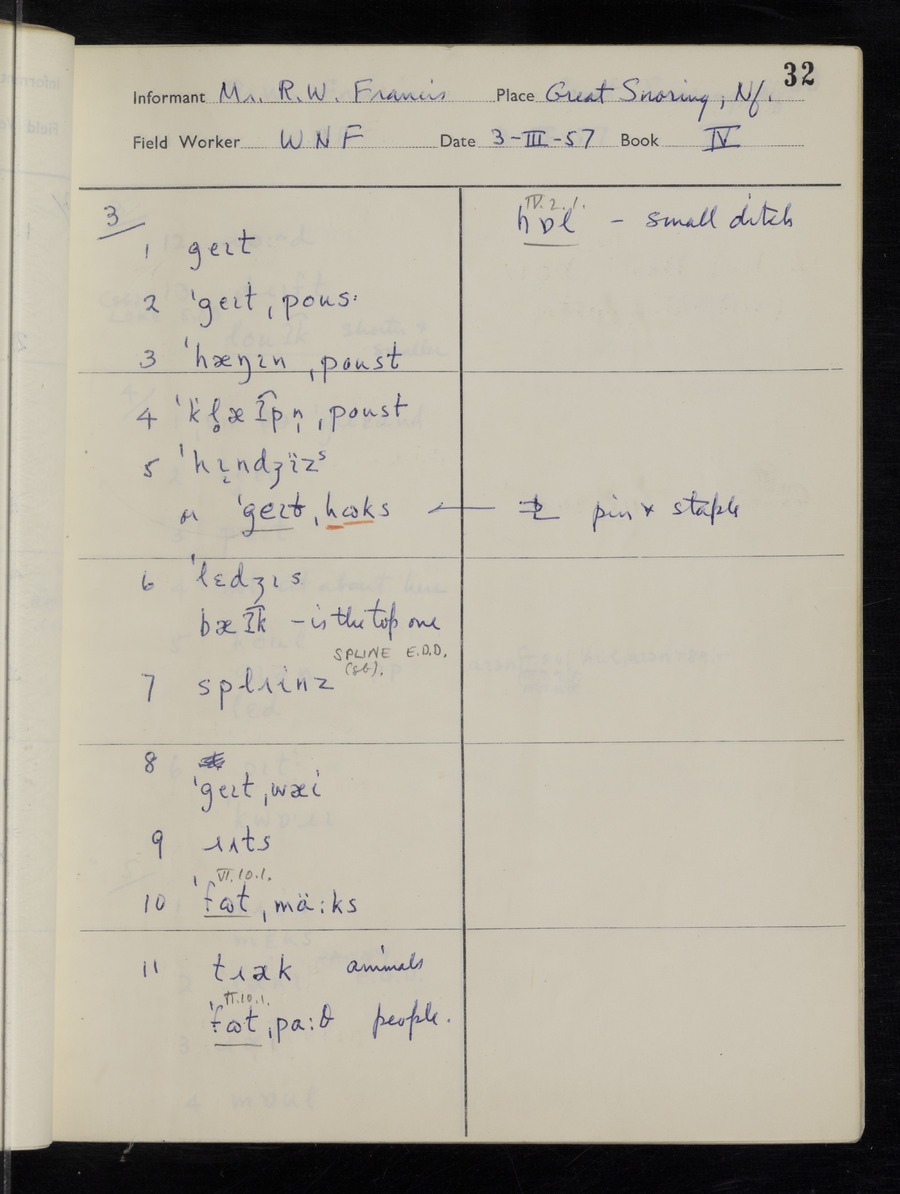 32
Informant Mr. R.W. Francis Place Great Snoring, Nf.
Field Worker WNF Date 3-III-57 Book IV
3
1 geɪt
2 ˈgeɪt ˌpous·
3 ˈhæŋɪn ˌpoust
4 ˌpoust
5 ˈhɪ̨ndʒïzˢ
or ˈgeɪt ˌhɷks
6 ˈledʒɪs
bæk - is the top one
SPLINE E.D.D.
(sb).
7 splɹinz
8
ˈgeɪt ˌwæi
9 ɹʌts
VI.10.1.
10 ˈfɷt ˌmä:ks
11 tɹæk animals
VI.10.1.
ˈfɷt ˌpa:θ people.
IV.2.1.
hɒl - small ditch
pin & staple